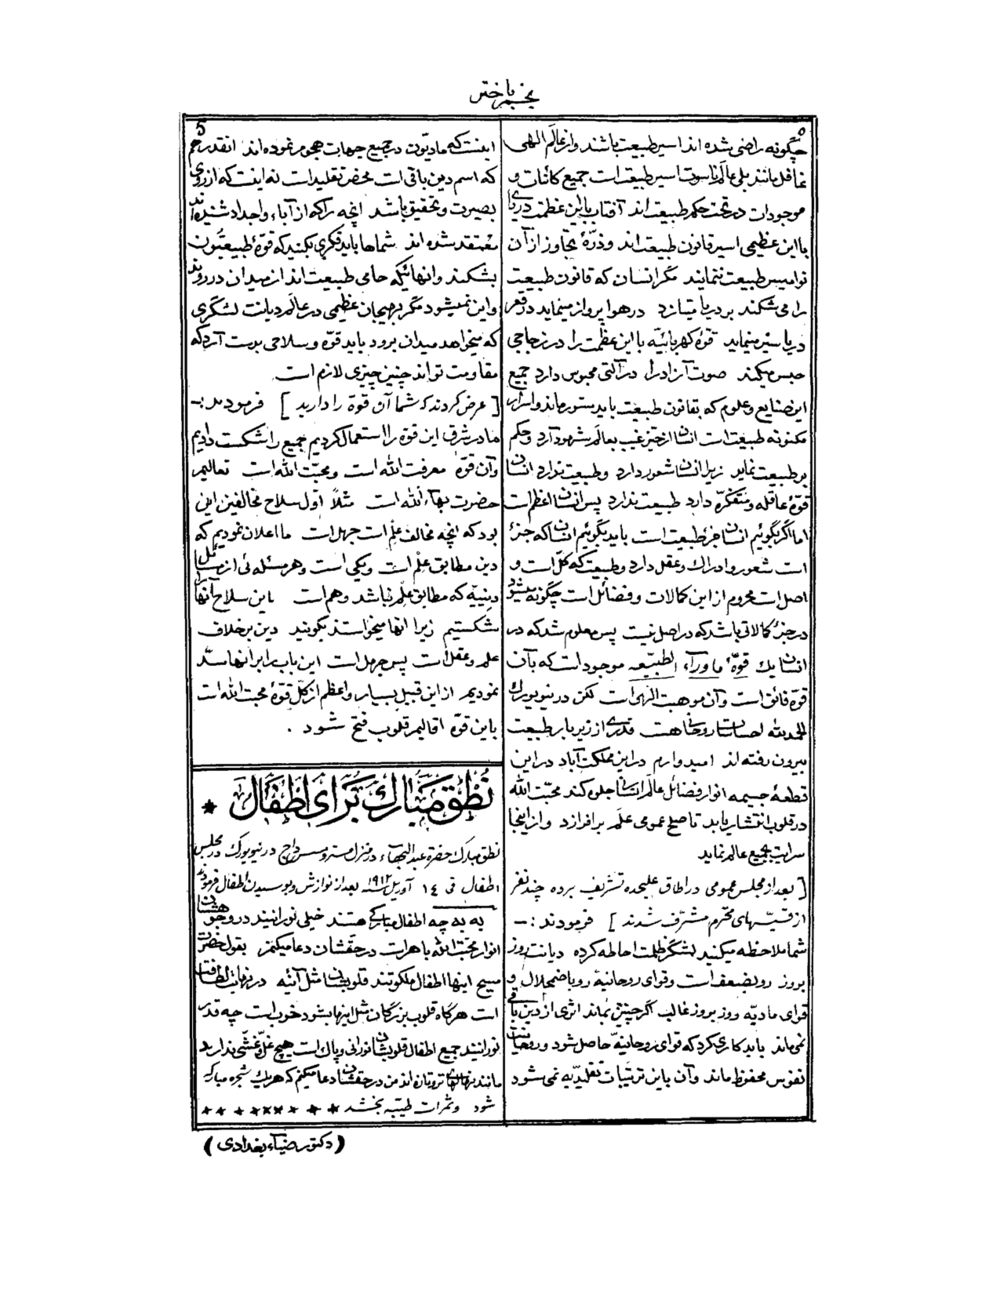 نجم باختر
۵
5
چگونه راضی شده اند اسیر طبیعت باشند و از عالم الهی
غافل مانند بلی عالم ناسوت اسیر طبیعت است جمیع کائنات و
موجودات در تحت حکم طبیعت اند آفتاب باین عظمت دریای
باین عظیمی اسیر قانون طبیعت اند و ذرّهٔ تجاوز از آن
نوامیس طبیعت ننمایند مگر انسان که قانون طبیعت
را می شکند بر دریا میتازد در هوا پرواز مینماید در قعر
دریا سیر مینماید قوهٔ کهربائیّه باین عظمت را در زجاجی
حبس میکند صوت آزاد را در آلتی محبوس دارد جمیع
این صنایع و علوم که بقانون طبیعت باید مستور ماند و اسرار
مکنونه طبیعت است انسان از حیّز غیب بعالم شهود آرد و حکم
بر طبیعت نماید زیرا انسان شعور دارد و طبیعت ندارد انسان
قوهٔ عاقله و متفکّره دارد طبیعت ندارد پس انسان اعظم است
اما اگر بگوئیم انسان جزء طبیعت است باید بگوئیم انسان که جزء
است شعور و ادراک و عقل دارد و طبیعت که کلّ است و
اصل است محروم از این کمالات و فضائل است چگونه میشود
در جزء کمالاتی باشد که در اصل نیست پس معلوم شد که در
انسان یک قوّهٔ ما وراء الطبیعه موجود است که بآن
قوه فائق است و آن موهبت الهی است لکن در نیویورک
الحمد لله احساسات روحانی هست قدری از زیر بار طبیعت
بیرون رفته اند امیدوارم در این مملکت آباد در این
قطعهٔ جسیمه انوار فضائل عالم انسانی جلوه کند محبّت الله
در قلوب انتشار یابد تا صلح عمومی علم برافرازد و از اینجا
سرایت بجمیع عالم نماید
[ بعد از مجلس عمومی در اطاق علیحده تشریف برده چند نفر
از قسّیسهای محترم مشرف شدند ] فرمودند :—
شما ملاحظه میکنید لشگر ظلمت احاطه کرده دیانت روز
بروز رو بضعف است و قوای روحانیه رو باضمحلال و
قوای مادیّه روز بروز غالب اگر چنین بماند اثری از دین باقی
نمی ماند باید کاری کرد که قوای روحانیّه حاصل شود و روحانیت
نفوس محفوظ ماند و آن باین ترتیبات تقلیدیّه نمی شود
اینست که مادیّون در جمیع جهات هجوم نموده اند انقدر هم
که اسم دین باقی است محض تقلید است نه اینست که از روی
بصیرت و تحقیق باشد انچه را که از آباء و اجداد شنیده اند
معتقد شده اند شماها باید فکری بکنید که قوهٔ طبیعیّون
بشکند و انهائیکه حامی طبیعت اند از میدان در روند
و این نمیشود مگر بهیجان عظیمی در عالم دیانت لشگری
که میخواهد میدان برود باید قوّه و سلاحی بدست آرد که
مقاومت تواند چنین چیزی لازم است
[ عرض کردند که شما آن قوة را دارید ] فرمودند :—
ما در شرق این قوة را استعمال کردیم جمیع را شکست دادیم
و آن قوة معرفت الله است و محبّت الله است تعالیم
حضرت بهاءالله است مثلا اوّل سلاح مخالفین این
بود که انچه مخالف علم است جهل است ما اعلان نمودیم که
دین مطابق علم است و یکی است و هر مسئله ئی از مسائل
دینیّه که مطابق علم نباشد وهم است باین سلاح آنها را
شکستیم زیرا انها میخواستند بگویند دین برخلاف
علم و عقل است پس جهل است این باب را بر انها سدّ
نمودیم از این قبیل بسیار و اعظم از کل قوهٔ محبت الله است
باین قوّه اقالیم قلوب فتح شود .
نطق مبارک برای اطفال *
نطق مبارک حضرة عبد البهاء در منزل مستر و مسس دا‌ج در نیویورک در مجلس
اطفال فی ١٤ آوریل ١٩١٢ بعد از نوازش و بوسیدن اطفال فرمودند
به به چه اطفال مبارکی هستند خیلی نورانیند در وجوهشان
انوار محبّت الله باهر است در حقشان دعا میکنم بقول حضرت
مسیح اینها اطفال ملکوتند قلوبشان مثل آئینه در نهایت لطافت
است هر گاه قلوب بزرگان مثل اینها بشود خوب است چه قدر
نورانیند جمیع اطفال قلوبشان نورانی و پاک است هیچ غلّ و غشّی ندارند
مانند نهالهای تر و تازه اند من در حقشان دعا میکنم که هر یک شجره مبارکه
شود و ثمرات طیّبه بخشد * * * * * * * * *
(دکتور ضیاء بغدادی)